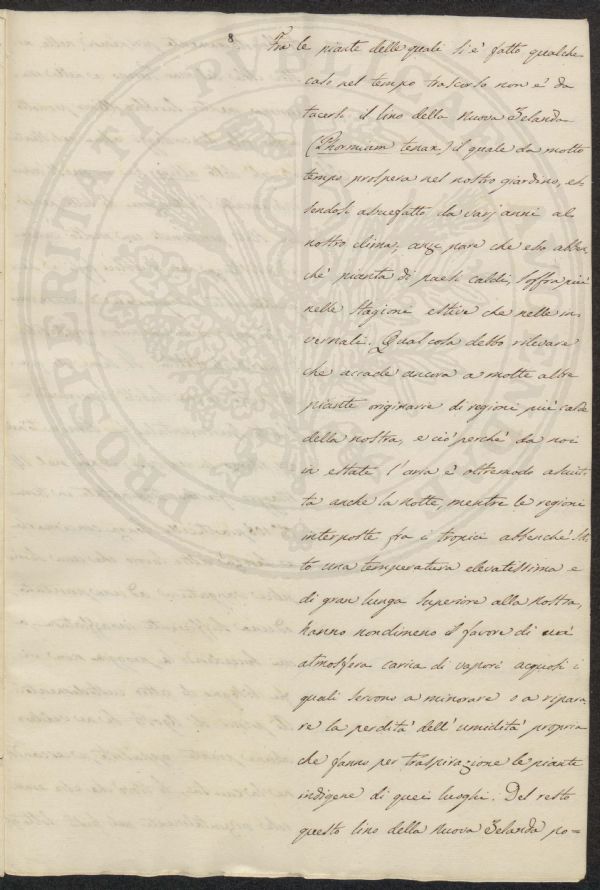 8
Fra le piante delle quali si è fatto qualche
caso nel tempo trascorso non è da
tacersi il lino della Nuova Zelanda
(Phormium tenax) il quale da molto
tempo prospera nel nostro giardino, es-
sendosi assuefatto da varj anni al
nostro clima, anzi pare che esso abben
chè pianta di paesi caldi, soffra più
nelle stagioni estive che nelle in-
vernali. Qual cosa debbo rilevare
che accade ancora a molte altre
piante originarie di regioni più calde
della nostra, e ciò perchè da noi
in estate l'aria è oltremodo asciut-
ta anche la notte, mentre le regioni
interposte fra i tropici abbenchè sot
to una temperatura elevatissima e
di gran lunga superiore alla nostra,
hanno nondimeno il favore di un'
atmosfera carica di vapori acquosi i
quali servono a minorare o a ripara-
re la perdita dell'umidità propria
che fanno per traspirazione le piante
indigene di quei luoghi. Del resto
questo lino della Nuova Zelanda po=
PROSPERITATI PUBLICAE